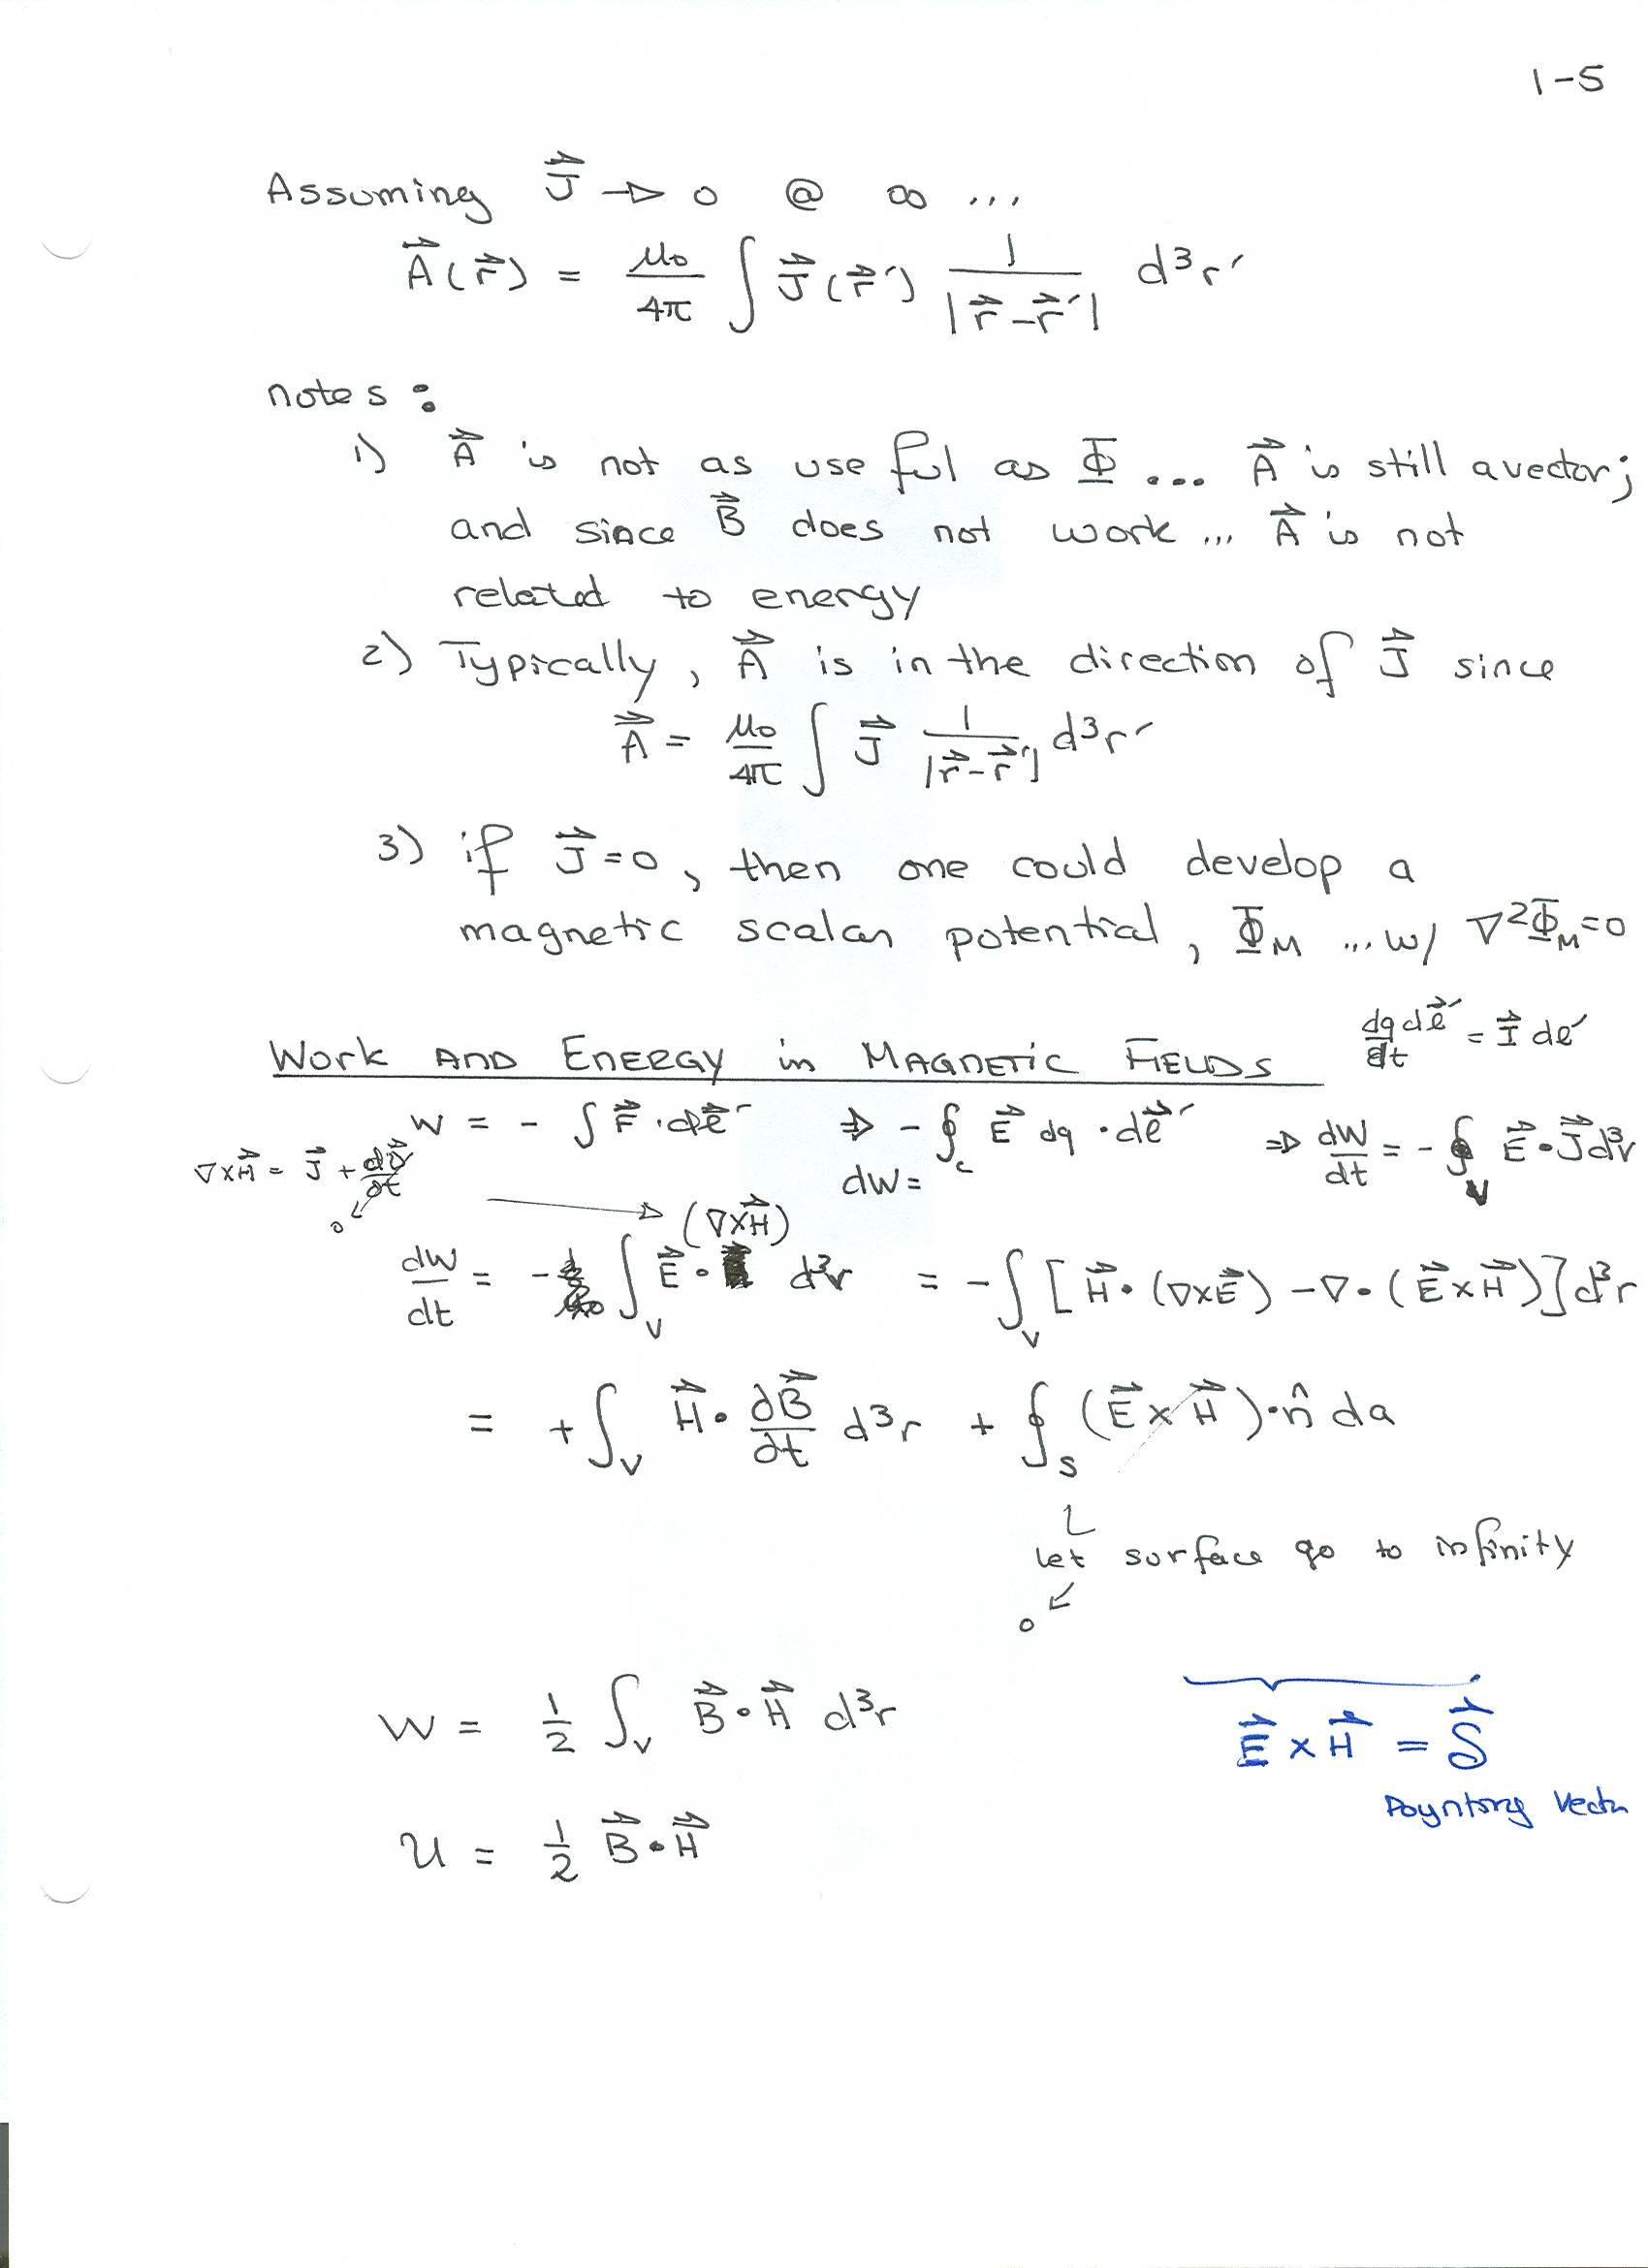 1-5
Assuming J⃗ → 0 @ ∞ ...
A⃗(r⃗) = μ₀/4π ∫ J⃗(r⃗′) 1/|r⃗-r⃗′| d³r′
notes:
1) A⃗ is not as useful as Φ ... A⃗ is still a vector;
and since B⃗ does not work ... A⃗ is not
related to energy
2) Typically, A⃗ is in the direction of J⃗ since
A⃗ = μ₀/4π ∫ J⃗ 1/|r⃗-r⃗′| d³r′
3) if J⃗=0, then one could develop a
magnetic scalar potential, Φ_M ... w/ ∇²Φ_M=0
dq/dt dℓ⃗′ = I⃗ dℓ′
WORK AND ENERGY in MAGNETIC FIELDS
W = - ∫ F⃗ · dℓ⃗′ ⇒ - ∮_c E⃗ dq · dℓ⃗′ ⇒ dW/dt = - ∮_V E⃗ · J⃗ d³r
dW =
∇×H⃗ = J⃗ + ∂D⃗/∂t
0
→ (∇×H⃗)
dW/dt = - ∫_V E⃗ · d³r = - ∫_V [H⃗ · (∇×E⃗) - ∇ · (E⃗×H⃗)] d³r
= + ∫_V H⃗ · ∂B⃗/∂t d³r + ∮_S (E⃗×H⃗) · n̂ da
let surface go to infinity
0
W = 1/2 ∫_V B⃗ · H⃗ d³r
E⃗ × H⃗ = S⃗
Poynting Vector
U = 1/2 B⃗ · H⃗